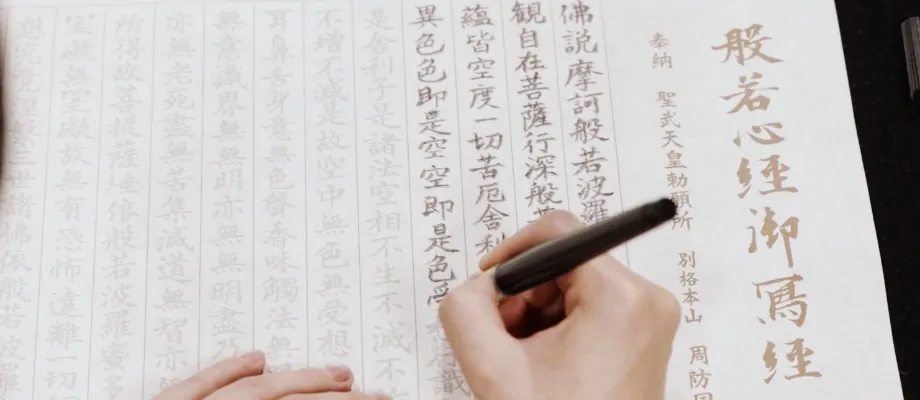 般若心経御寫経
奉納 聖武天皇勅願所 別格本山 周防
佛説摩訶般若波羅
観自在菩薩行深般
蘊皆空度一切苦厄舍利
異色色即是空空即是色受想行識
是舍利子是諸法空相不生不滅不
不増不減是故空中無色無受想
耳鼻舌身意無色聲香味觸法無
無意識界無無明亦無無明盡乃
亦無老死盡無苦集滅道無智亦
所得故菩提薩埵依般若波羅蜜多
罣礙無罣礙故無有恐怖遠離一切
想究竟涅槃三世諸佛依般若波羅